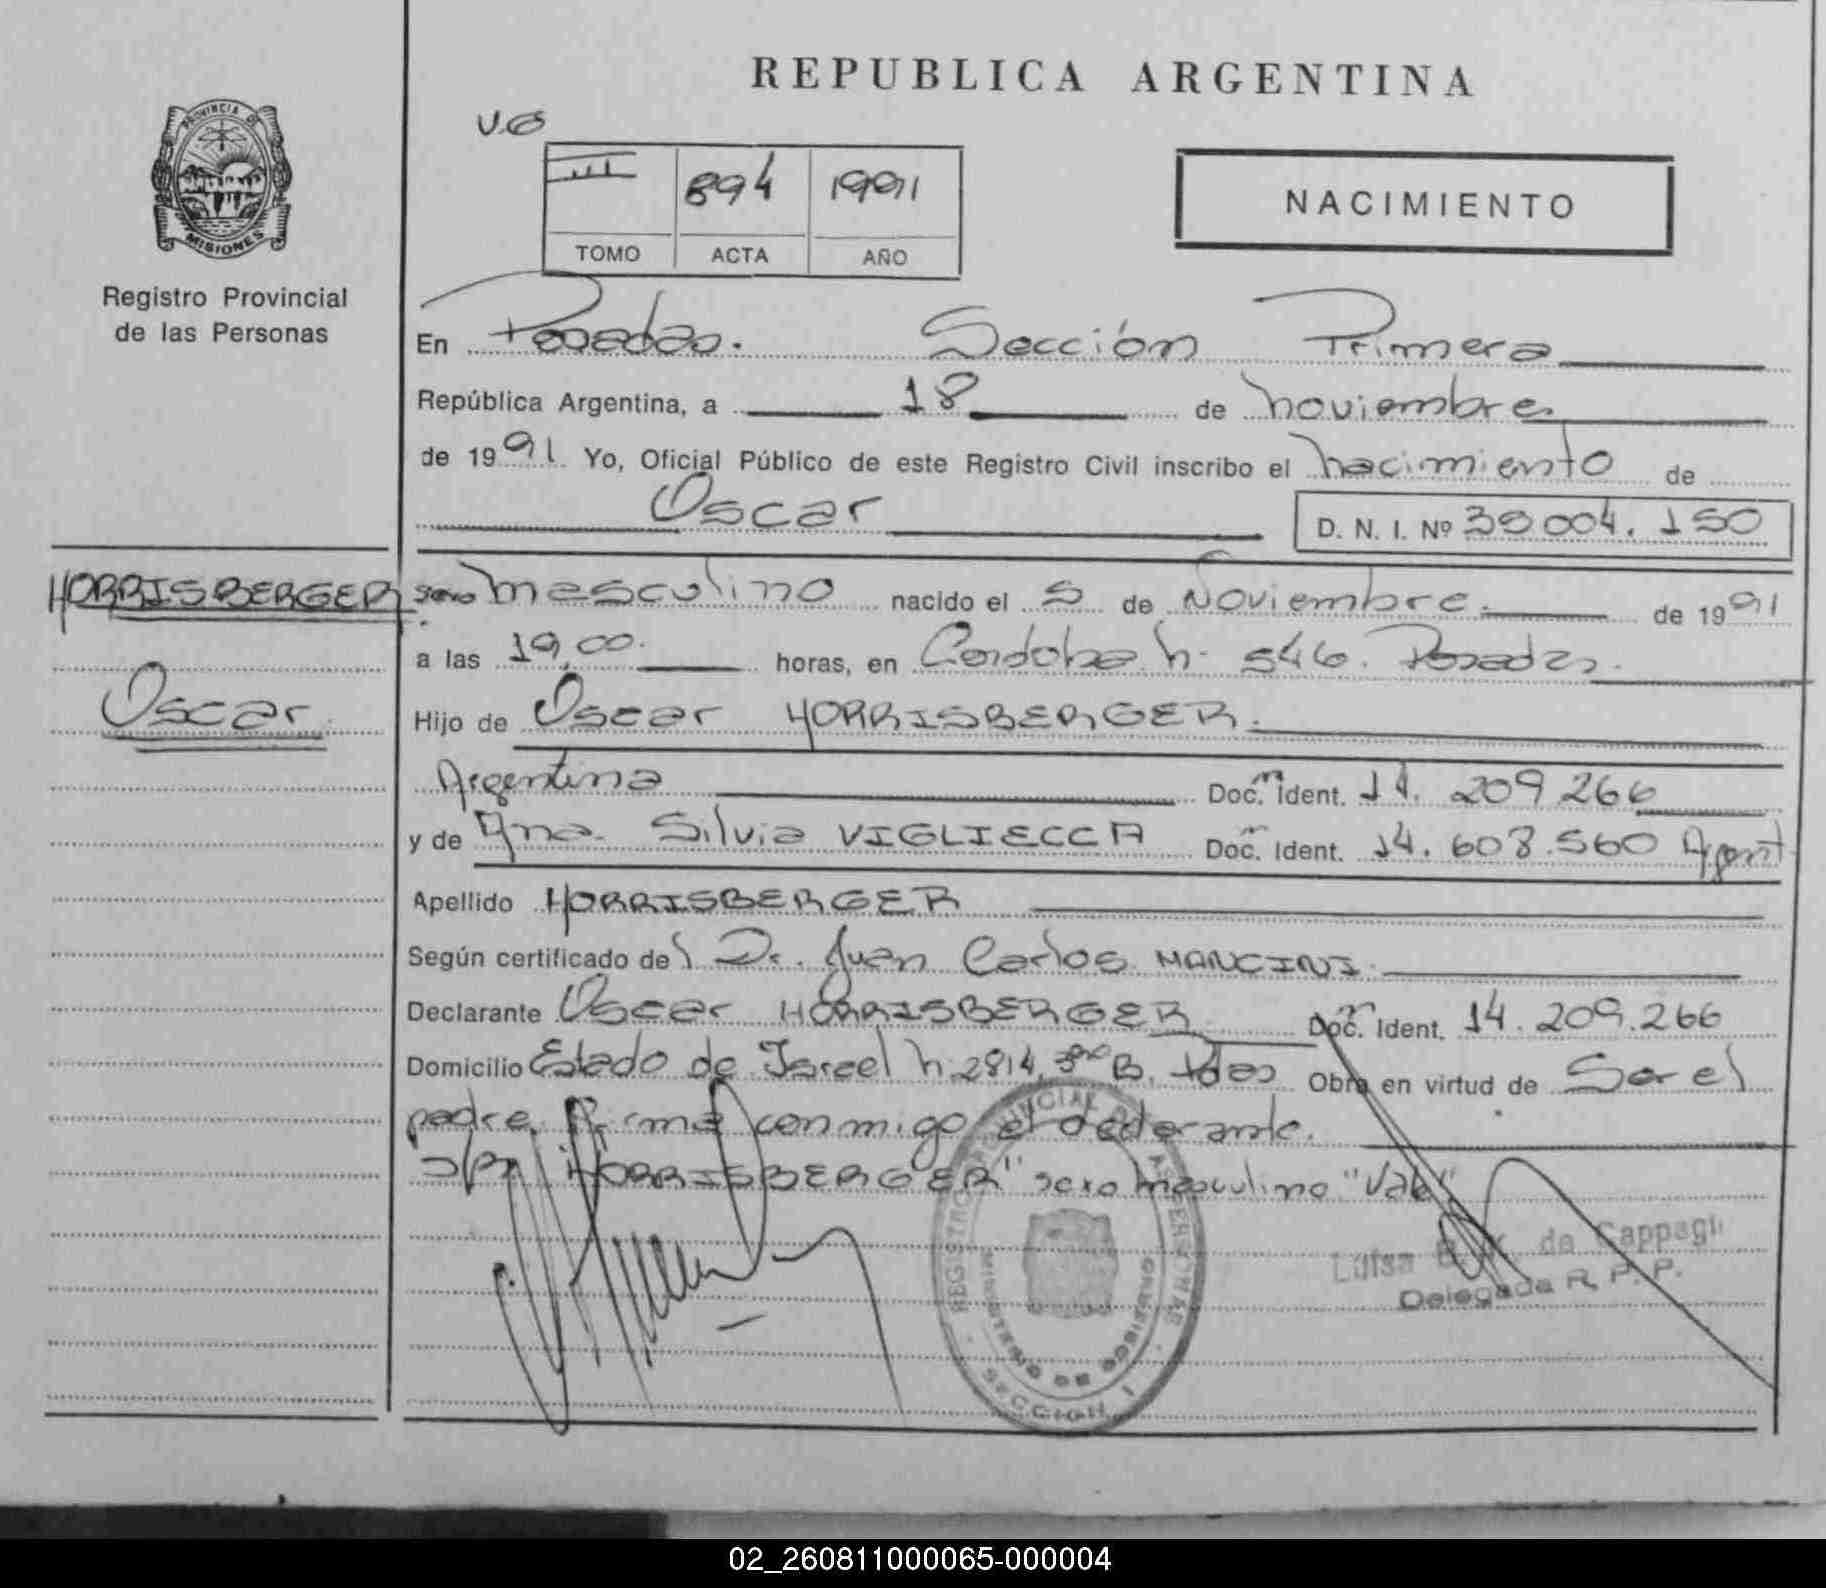 REPUBLICA ARGENTINA
PROVINCIA DE
MISIONES
Registro Provincial
de las Personas
V.G
III 894 1991
TOMO ACTA AÑO
NACIMIENTO
En Posadas. Sección Primera
República Argentina, a 18 de noviembre
de 1991 Yo, Oficial Público de este Registro Civil inscribo el nacimiento de
Oscar D. N. I. Nº 36.004.150
HORRISBERGER
Oscar
sexo masculino nacido el 5 de Noviembre. de 1991
a las 19,00. horas, en Cordoba n. 546. Posadas.
Hijo de Oscar HORRISBERGER.
Argentina Doc. Ident. 14. 209 266
y de Ana Silvia VIGLIECCA Doc. Ident. 14. 608.560 Argent
Apellido HORRISBERGER
Según certificado del Dr. Juan Carlos MANCINI.
Declarante Oscar HORRISBERGER Doc. Ident. 14. 209.266
Domicilio Estado de Israel n 2814, 3ro B. Pdas Obra en virtud de Ser el
padre. Firma conmigo el declarante.
S/R "HORRISBERGER" sexo masculino "Vale"
REGISTRO PROVINCIAL DE LAS PERSONAS
MINISTERIO DE GOBIERNO
SECCION I
Luisa de Cappagli
Delegada R. P. P.
02_260811000065-000004